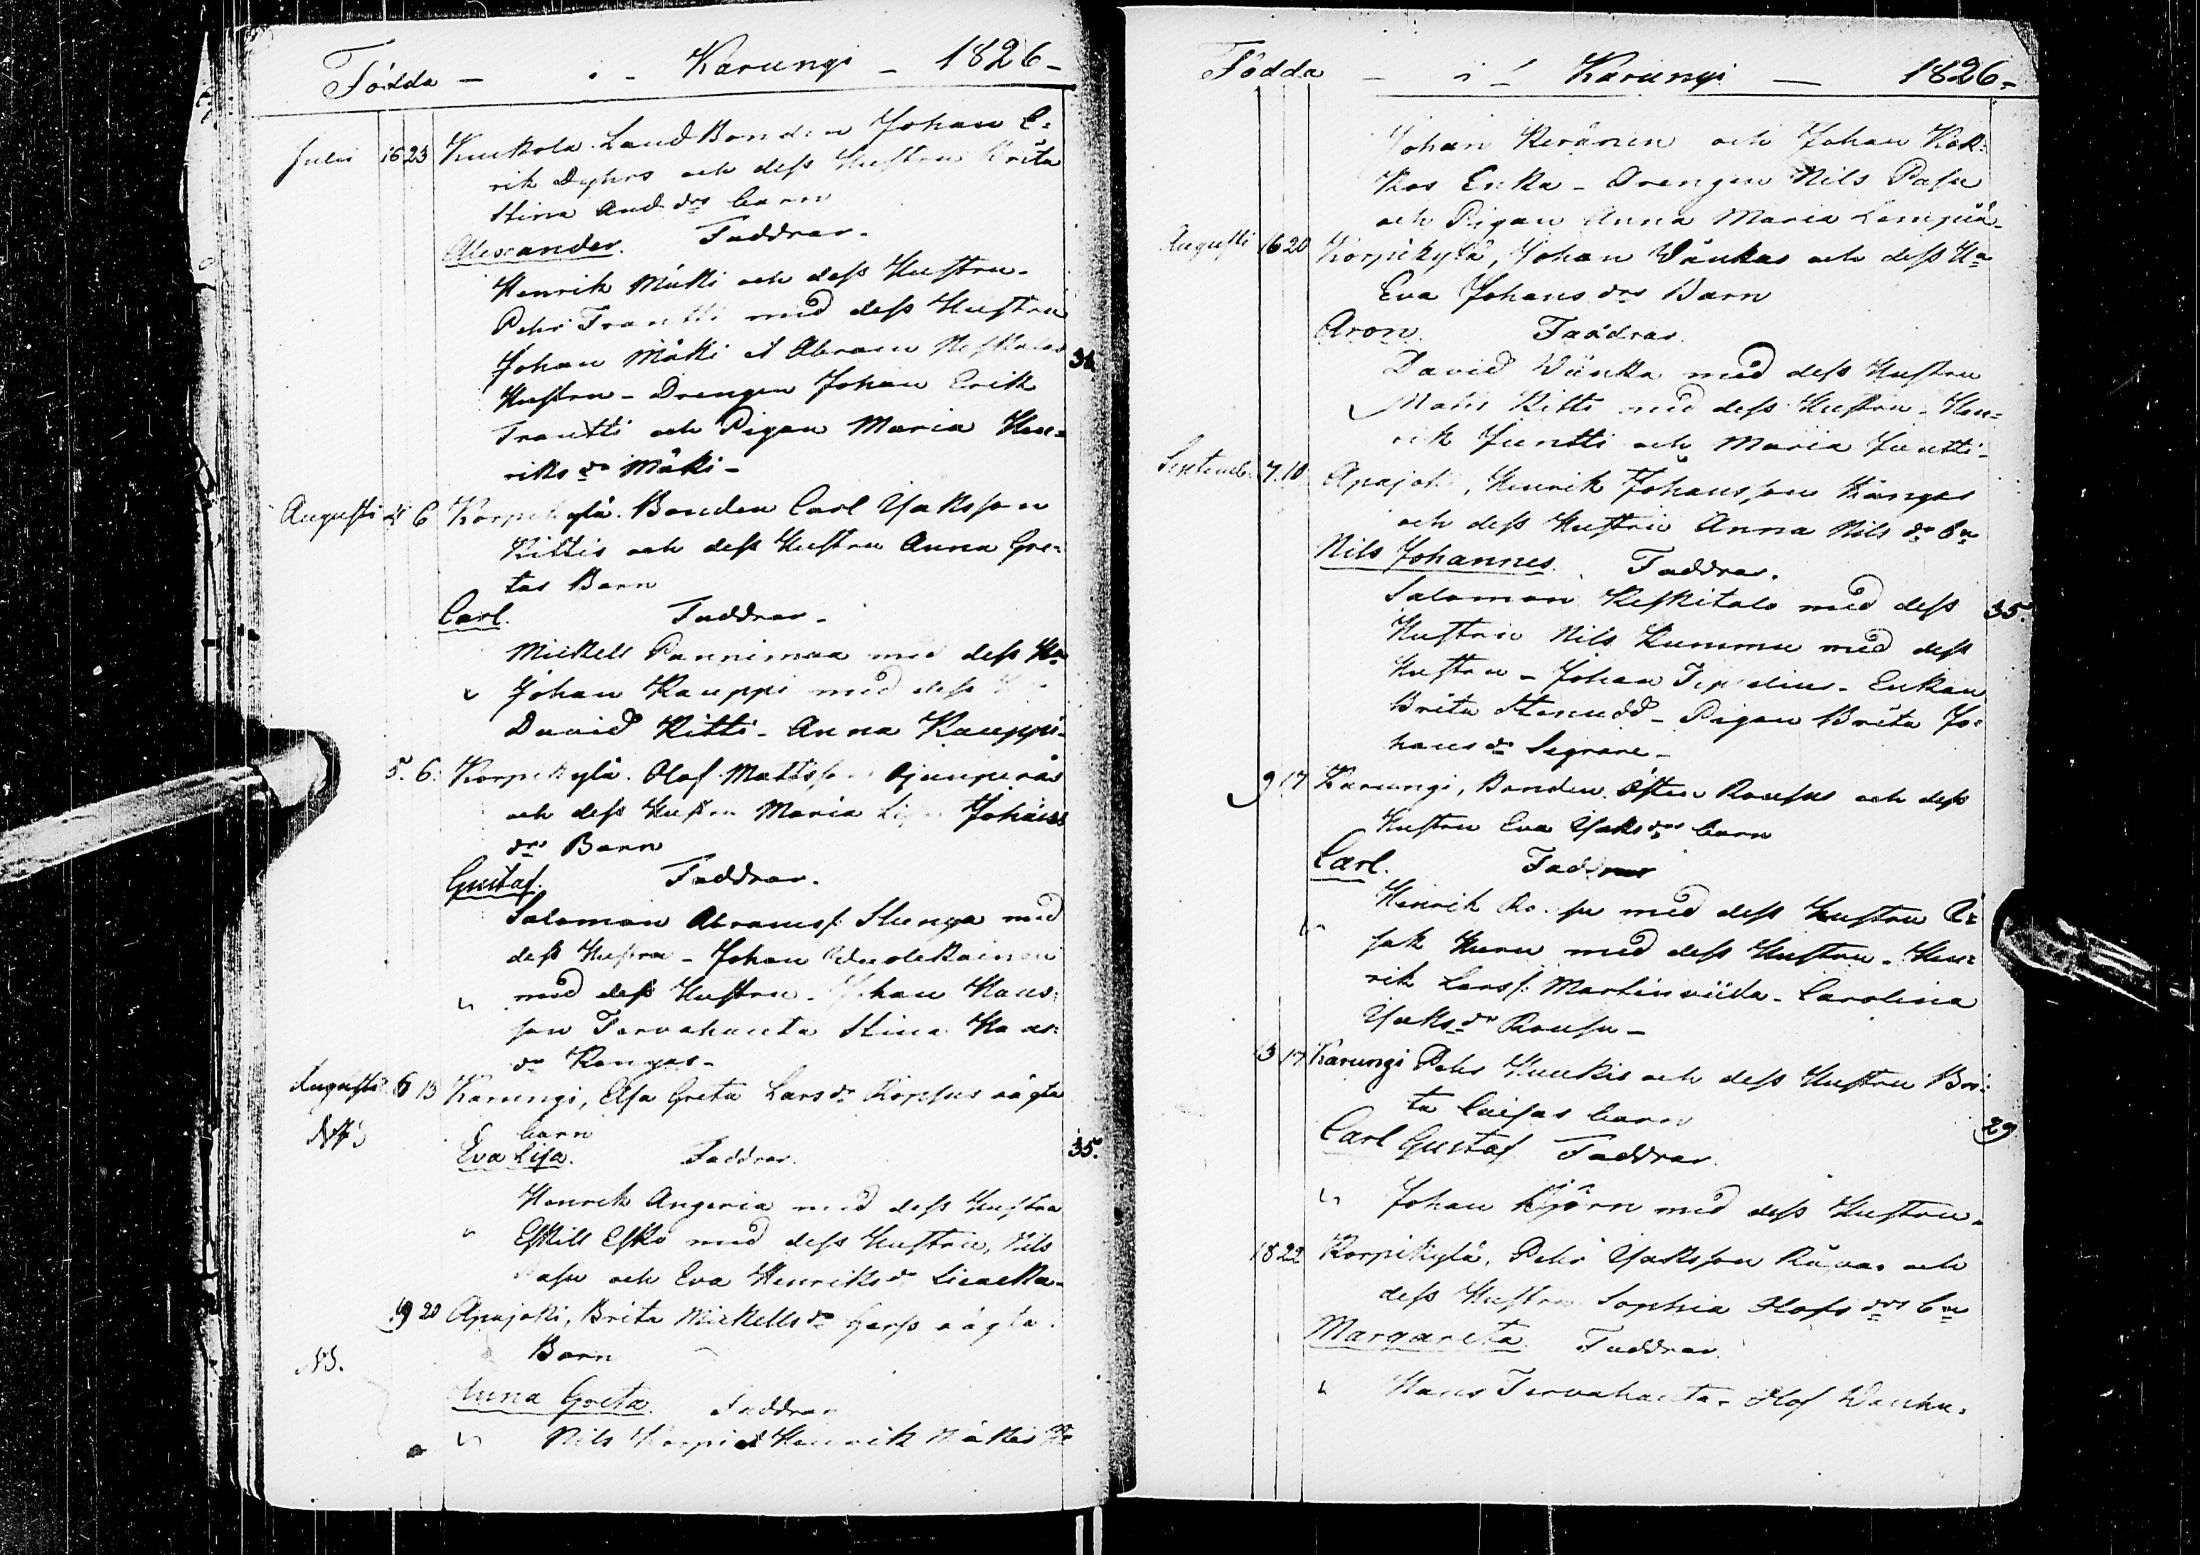 Födda - i - Karungi - 1826 -
Julii 16 23 Kuckola. LandBonden Johan E=
rik Dyhrs och dess Hustru Brita
Stina And. drs barn
Alexander. Faddrar.
Henrik Mäki och dess Hustru.
Pehr Trantti med dess Hustru
Johan Mäki et Abram
Hustru - Drengen Johan Erik
Trantti och Pigan Maria Hen=
riks dr Mäki -
34
Augusti 4 6 Korpikylä. Bonden Carl Isaksson
Kittis och dess Hustru Anna Gre=
tas Barn
Carl. Faddrar -
Mickell Pannimaa med dess Hu
Johan Kauppi med dess
David Kitti - Anna Kauppi -
5. 6. Korpikylä. Olof Mattss.
och dess Hustru Maria Lisa Johans
drs Barn
Gustaf. Faddrar.
Salomon Abramss: Slunga med
dess Hustru - Johan
med dess Hustru - Johan Hans=
son Tervahauta Stina Hans=
dr Kangas -
Augusti 6 13 Karungi, Elsa Greta Lars dr oägta
barn
Eva Lisa. Faddrar.
35.
Henrik Angeria med dess Hustru
Eskill Esko med dess Hustru, Nils
Pasu och Eva Henriks dr
19 20 Apajoki, Brita Mickells dr oägta
NB. Barn
Anna Greta. Faddrar
Nils Korpi et Henrik Mäkis Hu
Födda - i - Karungi - 1826 -
Johan Keränen och Johan Kok=
kos Enka - Drengen Nils Pasu
och Pigan Anna Maria
Augusti 16 20 Korpikylä, Johan Wänkas och dess Hu
Eva Johans drs Barn
Aron. Faddrar.
David Wänkä med dess Hustru
Mats Kitti med dess Hustru - Hen=
rik Juntti och Maria Juntti -
Septemb. 7. 10 Apajoki, Henrik Johansson Kangas
och dess Hustru Anna Nils dr bn
Nils Johannes. Faddrar.
Salomon Keskitalo med dess 35.
Hustru Nils Kummu med dess
Hustru - Johan - Enkan
Brita Stenudd - Pigan Brita Jo=
hans dr -
9 17 Karungi, Bonden Östen Rousus och dess
Hustru Eva Isaks drs barn
Carl. Faddrar
Henrik Rousu med dess Hustru I=
sak Huru med dess Hustru - Hen=
rik Larss: Martinviida - Carolina
Isaks dr Rousu -
13 17 Karungi Pehr Hunkis och dess Hustru Bri=
ta Caisas barn
29
Carl Gustaf Faddrar.
Johan Björn med dess Hustru -
18 22 Korpikylä, Pehr Isaksson och
dess Hustru Sophia Olofs drs bn
Margareta. Faddrar.
Hans Tervahauta - Olof